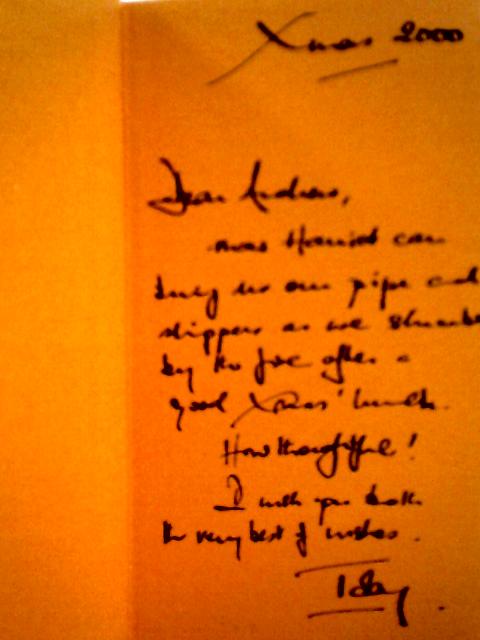 Xmas 2000
Dear Andrew,
now Harriet can
bring us our pipe and
slippers as we slumber
by the fire after a
good Xmas' lunch.
How thoughtful!
I wish you both
the very best of wishes.